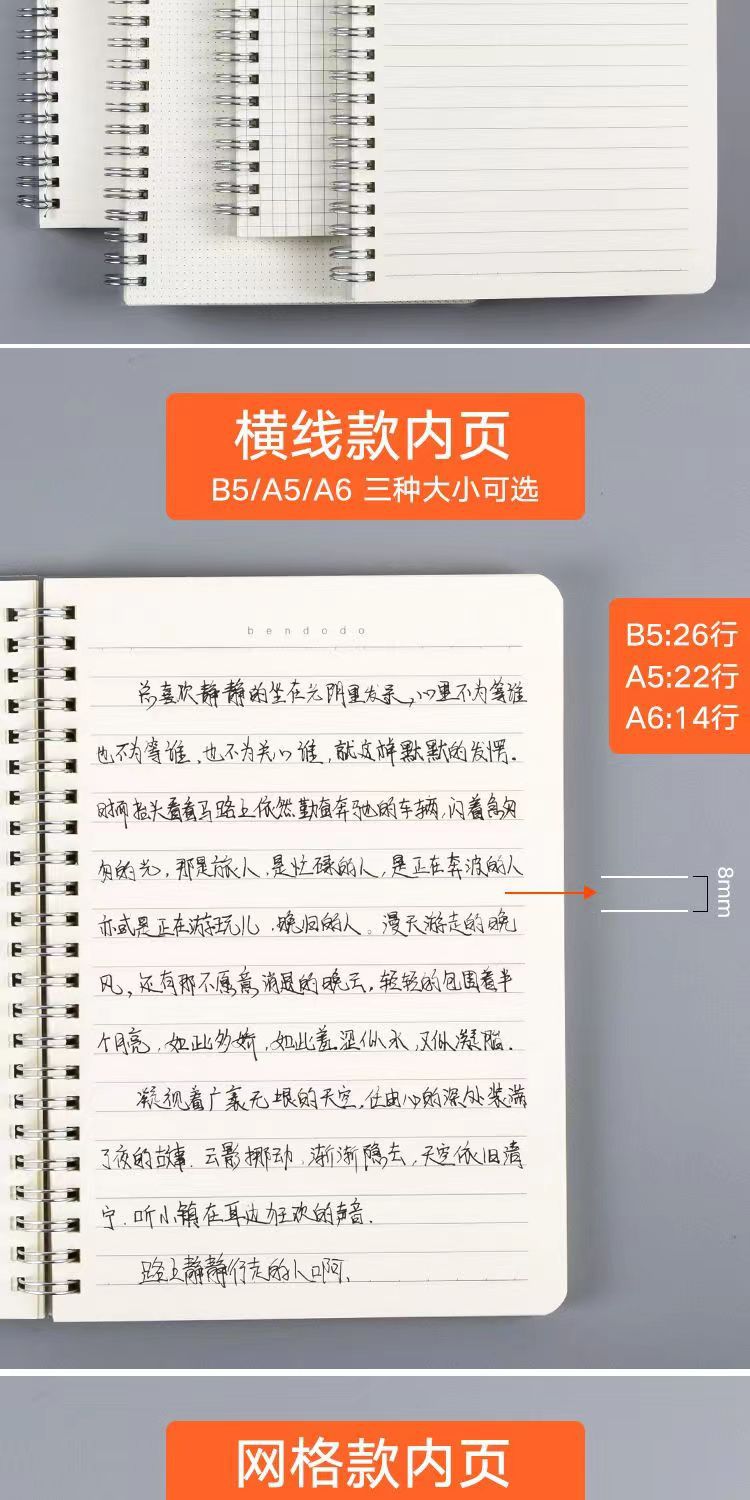 横线款内页
B5/A5/A6 三种大小可选
bendodo
B5:26行
A5:22行
A6:14行
总喜欢静静的坐在光阴里发呆,心里不为等谁
也不为等谁,也不为关心谁,就这样默默的发愣。
时而抬头看看马路上依然勤奋奔驰的车辆,闪着匆匆
匆的光,那是旅人,是忙碌的人,是正在奔波的人
亦或是正在游玩儿,晚归的人。漫天游走的晚
风,还有那不愿意消退的晚云,轻轻的包围着半
个月亮,如此多娇,如此羞涩似水,又似凝脂.
8mm
凝视着广袤无垠的天空,任由心的深处装满
了夜的故事.云影挪动,渐渐隐去,天空依旧清
宁.听小镇在耳边狂欢的声音.
路上静静行走的人啊,
网格款内页